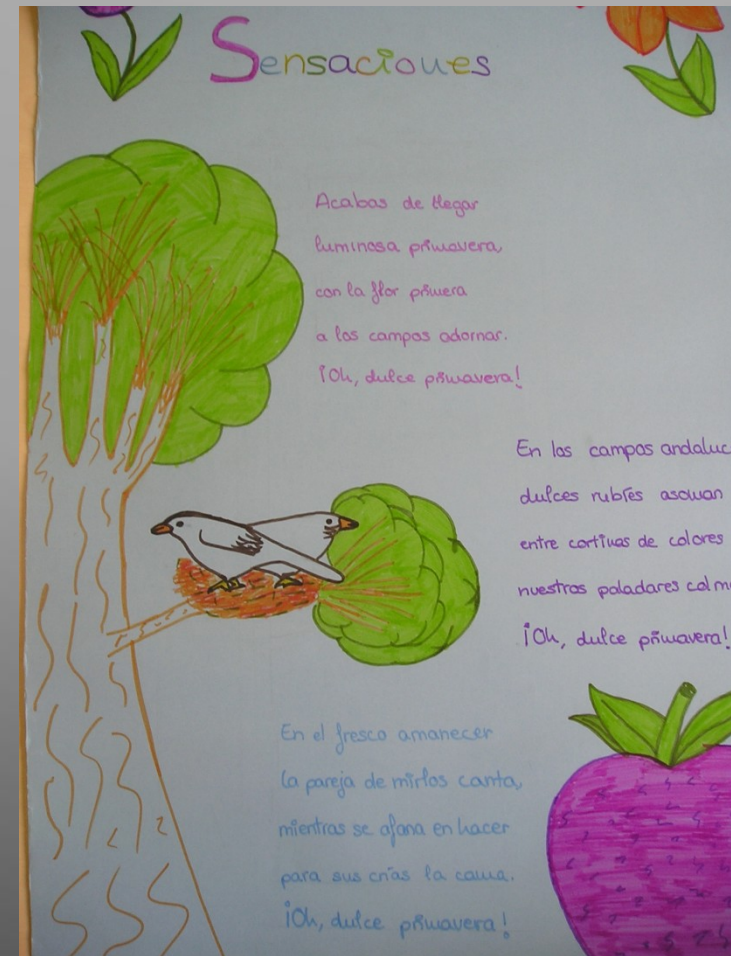 Sensaciones
Acabas de llegar
luminosa primavera,
con la flor primera
a los campos adornar.
¡Oh, dulce primavera!
En los campos andaluc
dulces rubíes asoman
entre cortinas de colores
nuestros paladares colm
¡Oh, dulce primavera!
En el fresco amanecer
la pareja de mirlos canta,
mientras se afana en hacer
para sus crías la cama.
¡Oh, dulce primavera!